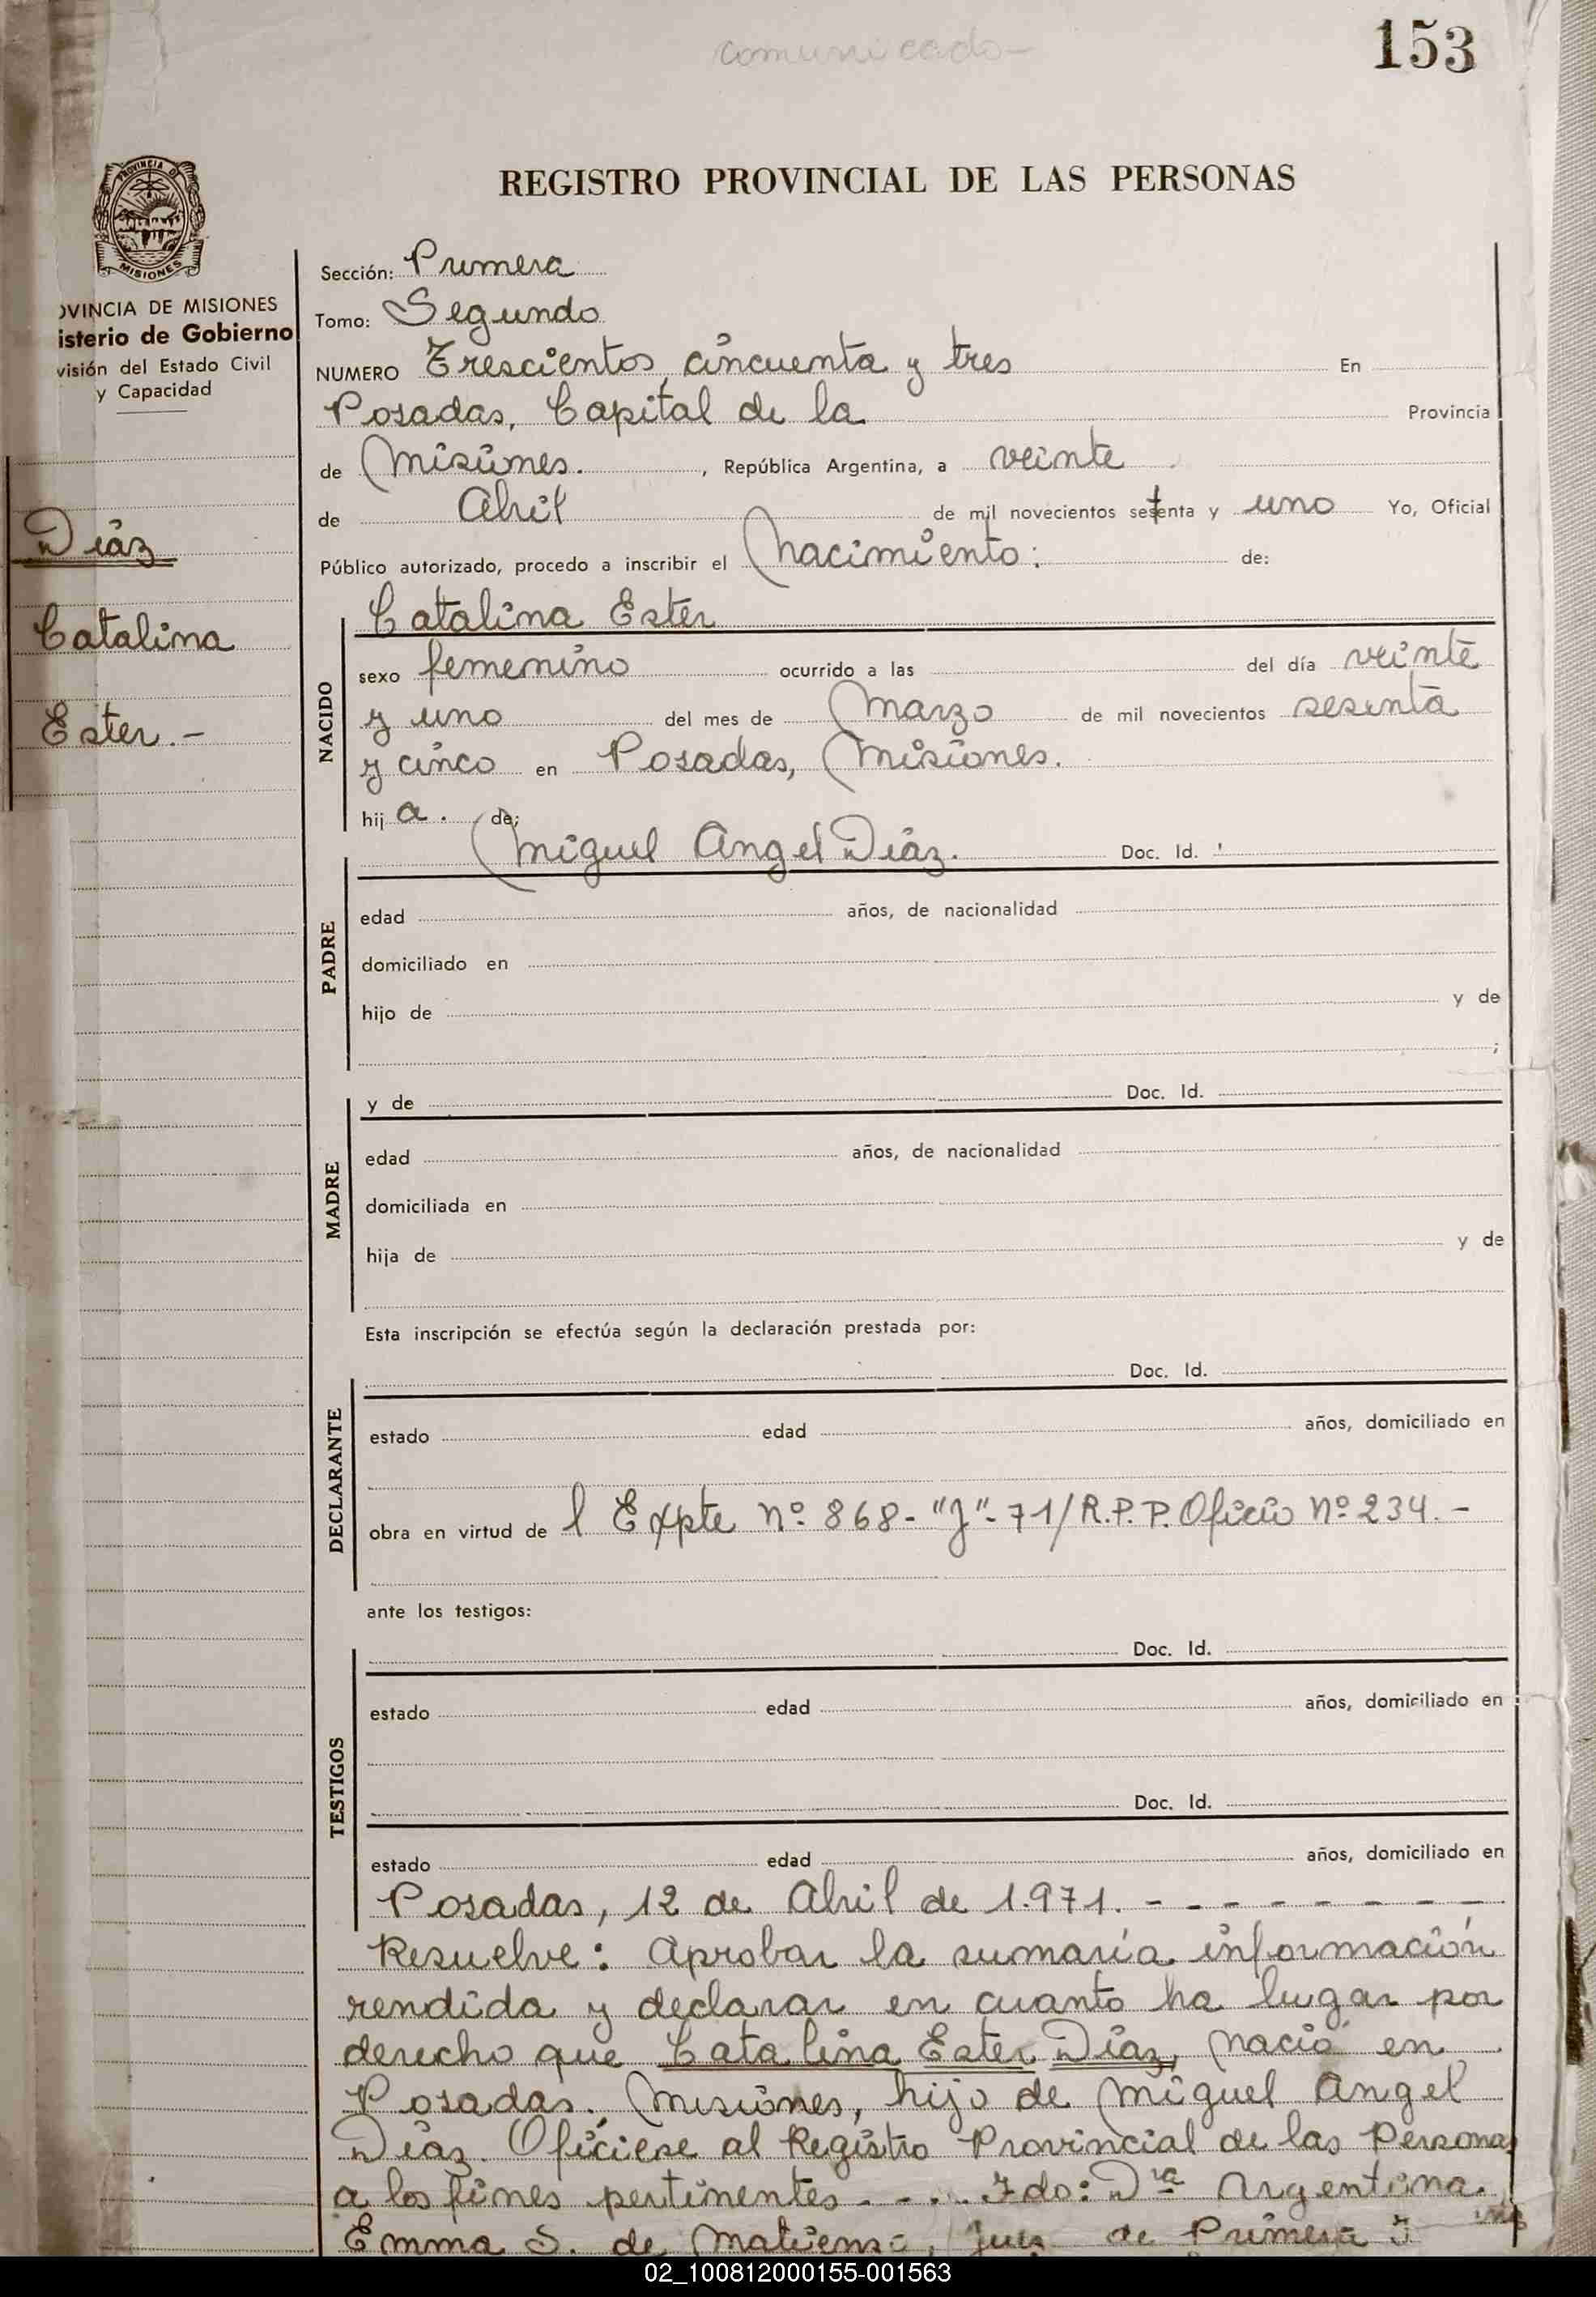 comunicado-
153
REGISTRO PROVINCIAL DE LAS PERSONAS
PROVINCIA DE
MISIONES
OVINCIA DE MISIONES
isterio de Gobierno
visión del Estado Civil
y Capacidad
Díaz
Catalina
Ester.-
Sección: Primera
Tomo: Segundo
NUMERO Trescientos cincuenta y tres En
Posadas, Capital de la Provincia
de Misiones. , República Argentina, a veinte
de Abril de mil novecientos setenta y uno Yo, Oficial
Público autorizado, procedo a inscribir el Nacimiento: de:
NACIDO
Catalina Ester
sexo femenino ocurrido a las del día veinte
y uno del mes de Marzo de mil novecientos sesenta
y cinco en Posadas, Misiones.
hij a. de;
PADRE
Miguel Angel Díaz. Doc. Id.
edad años, de nacionalidad
domiciliado en
hijo de y de
;
MADRE
y de Doc. Id.
edad años, de nacionalidad
domiciliada en
hija de y de
Esta inscripción se efectúa según la declaración prestada por:
DECLARANTE
Doc. Id.
estado edad años, domiciliado en
obra en virtud de l Expte Nº 868-"J"-71/R.P.P. Oficio Nº 234.-
ante los testigos:
TESTIGOS
Doc. Id.
estado edad años, domiciliado en
Doc. Id.
estado edad años, domiciliado en
Posadas, 12 de Abril de 1.971. - - - - - - - -
Resuelve: Aprobar la sumaría información
rendida y declarar en cuanto ha lugar por
derecho que Catalina Ester Díaz, nació en
Posadas. Misiones, hijo de Miguel Angel
Díaz. Ofíciese al Registro Provincial de las Personas
a los fines pertinentes - - . . Fdo: Dra Argentina.
Emma S. de Juez de Primera I
02_100812000155-001563